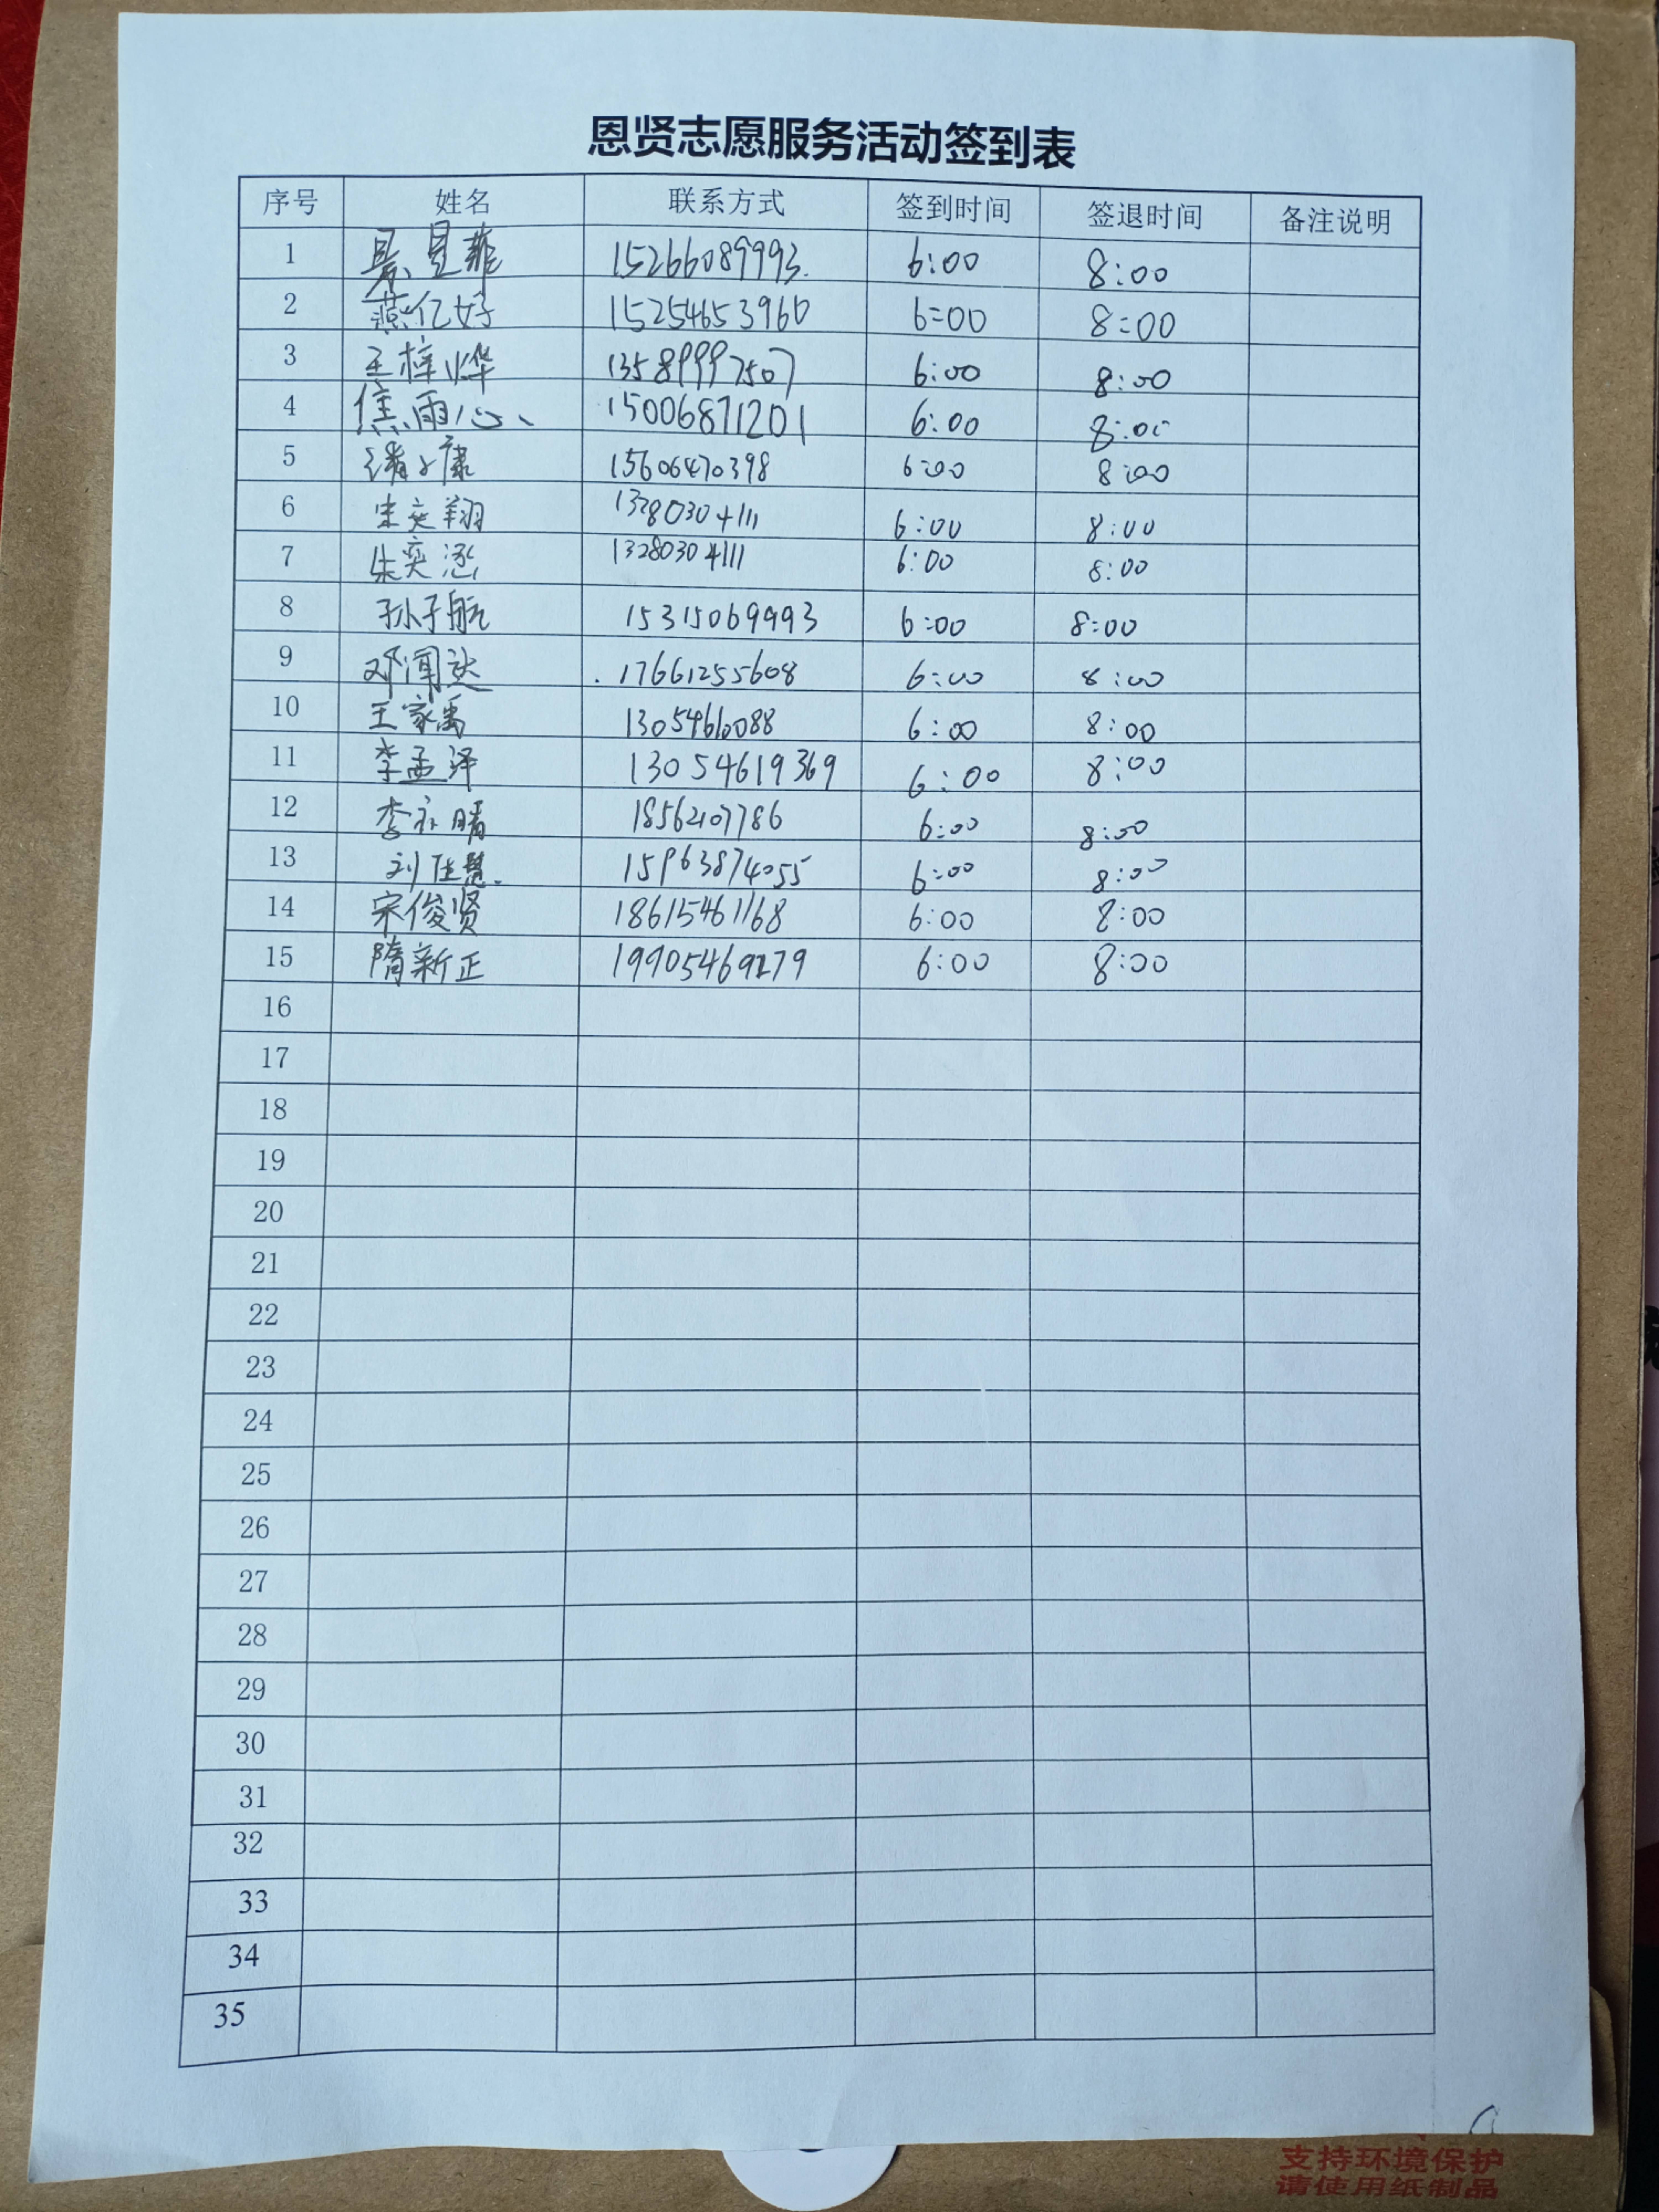 恩贤志愿服务活动签到表
序号 姓名 联系方式 签到时间 签退时间 备注说明
1 15266089993. 6:00 8:00
2 燕亿好 15254653960 6:00 8:00
3 王梓烨 13589997507 6:00 8:00
4 焦雨心 15006871201 6:00 8:00
5 15606470398 6:00 8:00
6 朱奕翔 13280304111 6:00 8:00
7 朱奕涵 13280304111 6:00 8:00
8 孙子航 15315069993 6:00 8:00
9 邓闻达 17661255608 6:00 8:00
10 王家禹 6:00 8:00
11 李孟泽 13054619369 6:00 8:00
12 李 晴 18562107786 6:00 8:00
13 刘佳慧 15963874055 6:00 8:00
14 宋俊贤 18615461168 6:00 8:00
15 隋新正 19905469279 6:00 8:00
16
17
18
19
20
21
22
23
24
25
26
27
28
29
30
31
32
33
34
35
支持环境保护
请使用纸制品